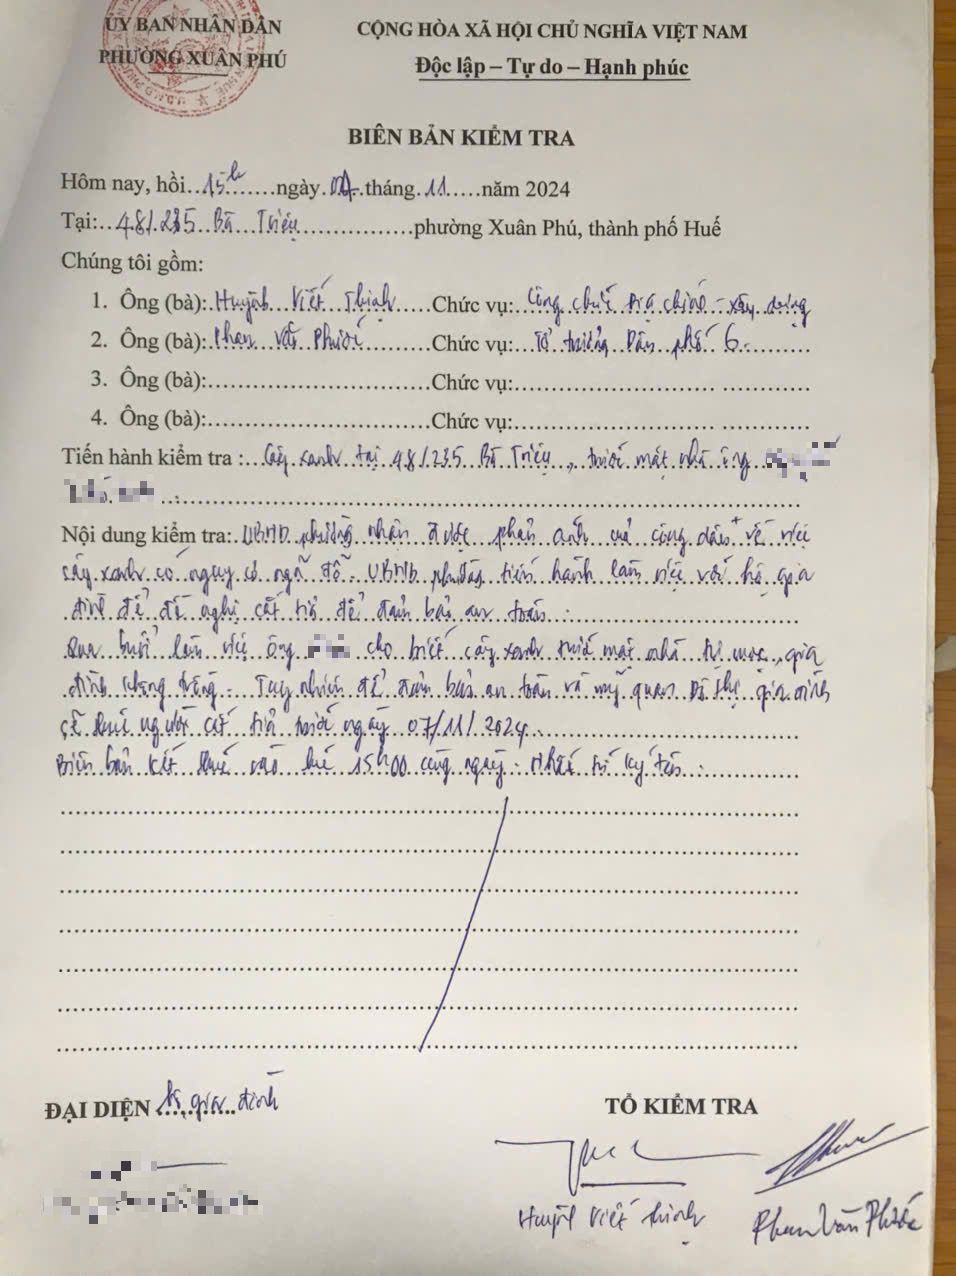 ỦY BAN NHÂN DÂN
PHƯỜNG XUÂN PHÚ
CỘNG HÒA XÃ HỘI CHỦ NGHĨA VIỆT NAM
Độc lập – Tự do – Hạnh phúc
BIÊN BẢN KIỂM TRA
Hôm nay, hồi..15h.......ngày.04.tháng.11.....năm 2024
Tại:..48/235 Bà Triệu................phường Xuân Phú, thành phố Huế
Chúng tôi gồm:
1. Ông (bà):.Huỳnh Viết Thịnh....Chức vụ:..Công chức địa chính - xây dựng
2. Ông (bà):.Phan Văn Phước......Chức vụ:...Tổ trưởng Dân phố 6...........
3. Ông (bà):..................................Chức vụ:................................... ...............
4. Ông (bà):..................................Chức vụ:................................... ...............
Tiến hành kiểm tra :...Cây xanh tại 48/235 Bà Triệu, trước mặt nhà ông
Nội dung kiểm tra:.UBND phường nhận được phản ánh của công dân về việc
cây xanh có nguy cơ ngã đổ. UBND phường tiến hành làm việc với hộ gia
đình để đề nghị cắt tỉa để đảm bảo an toàn.
Qua buổi làm việc ông cho biết cây xanh trước mặt nhà tự mọc, gia
đình không trồng. Tuy nhiên để đảm bảo an toàn và mỹ quan đô thị gia đình
sẽ thuê người cắt tỉa trước ngày 07/11/2024.
Biên bản kết thúc vào lúc 15h00 cùng ngày. Nhất trí ký tên.
ĐẠI DIỆN gia đình
TỔ KIỂM TRA
Huỳnh Viết Thịnh
Phan Văn Phước